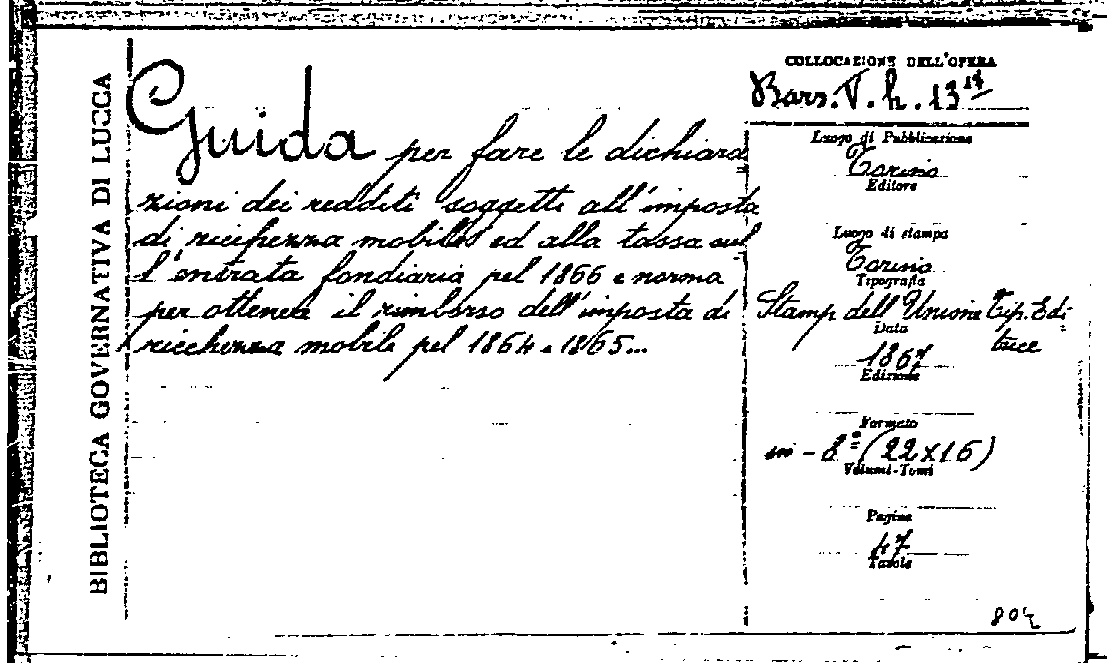 BIBLIOTECA GOVERNATIVA DI LUCCA
Guida per fare le dichiara
zioni dei redditi soggetti all'imposta
di ricchezza mobile ed alla tassa sul
l'entrata fondiaria pel 1866 e norma
per ottenere il rimborso dell'imposta di
ricchezza mobile pel 1864 e 1865...
COLLOCAZIONE DELL'OPERA
Bars. V. h. 13
Luogo di Pubblicazione
Torino
Editore
Luogo di stampa
Torino
Tipografia
Stamp dell'Unione Tip. Edi
trice
Data
1867
Edizione
Formato
in - 8º (22x16)
Volumi-Tomi
Pagine
47
Tavole